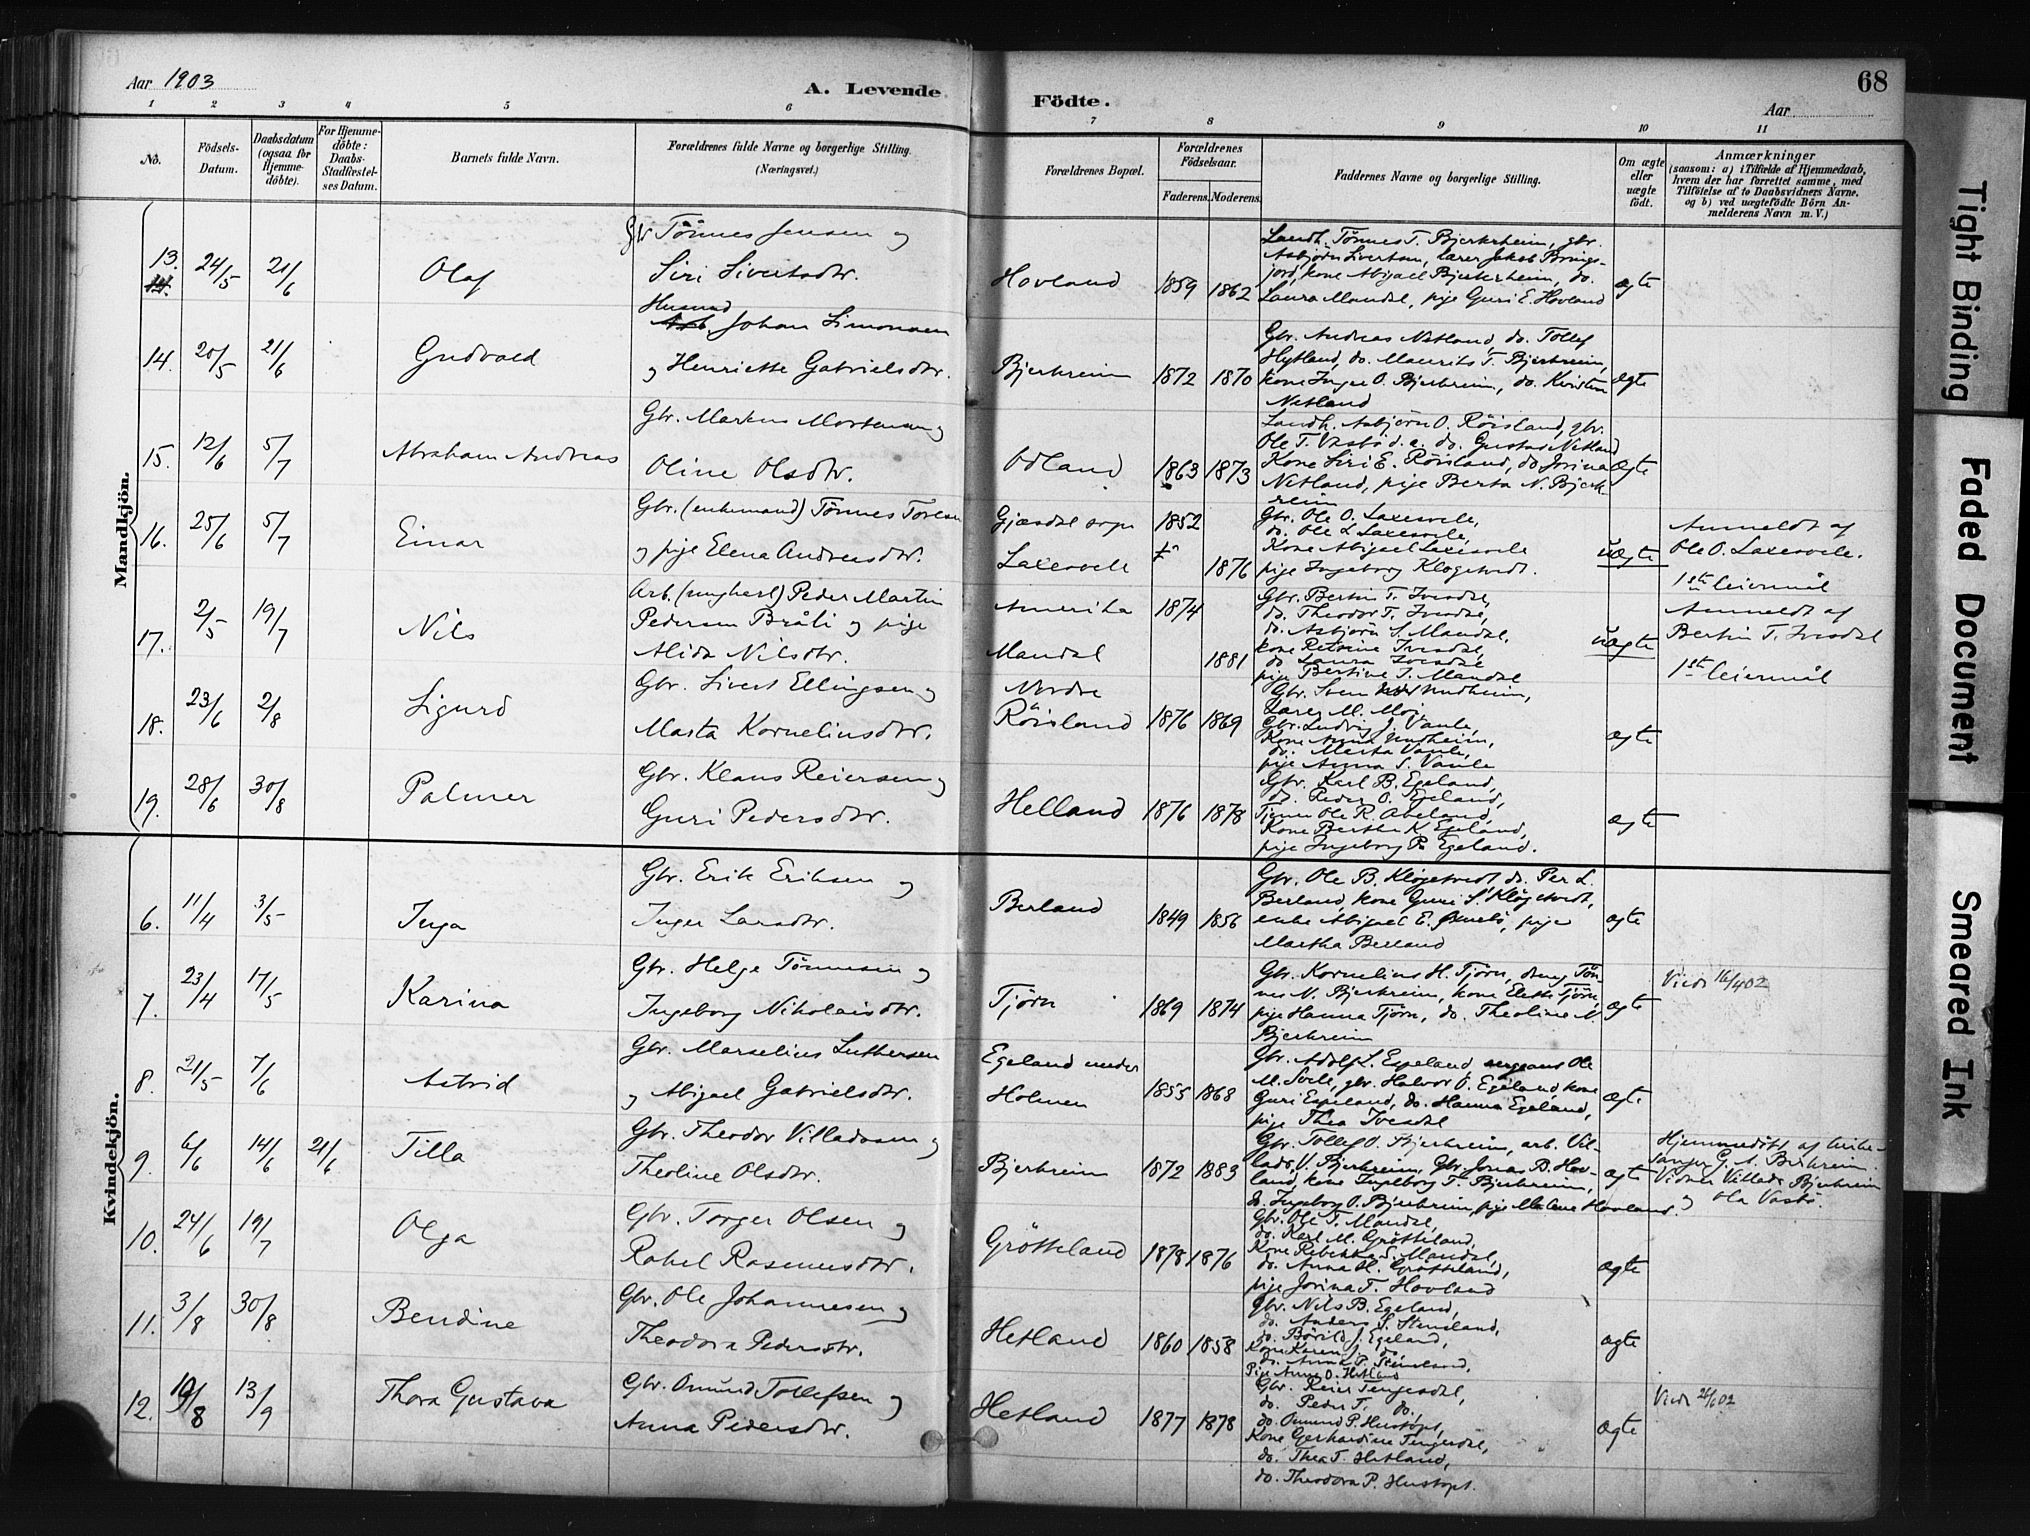 68
Aar 1903
A. Levende
Födte.
Aar
1 2 3 4 5 6 7 8 9 10 11
No.
Födsels-
Datum.
Daabsdatum
(ogsaa for
Hjemme-
döbte).
For Hjemme-
döbte:
Daabs-
Stadfæstel-
ses Datum.
Barnets fulde Navn.
Forældrenes fulde Navne og borgerlige Stilling.
(Næringsvei.)
Forældrenes Bopæl.
Forældrenes
Födselsaar.
Faderens. Moderens.
Faddernes Navne og borgerlige Stilling.
Om ægte
eller
uægte
födt.
Anmærkninger
(saasom: a) i Tilfælde af Hjemmedaab,
hvem der har forrettet samme, med
Tilföielse af to Daabsvidners Navne,
og b) ved uægtefödte Börn An-
melderens Navn m. V.)
Mandkjön.
13. 24/5 21/6 Olaf
Gbr Tönnes Jensen og
Siri Sivertsdtr.
Hovland 1859 1862
Landh. Tönnes T. Bjerkrheim, gbr.
Asbjörn Livertsen, lærer Jakob Brings-
jord, kone Abigael Bjerkrheim, do.
Laura Mandal, pige Guri E. Hovland
ægte
14. 20/5 21/6 Gudvald
Husmd
Johan Simonsen
og Henriette Gabrielsdtr.
Bjerkreim 1872 1870
Gbr. Andreas Netland, do. Tollef
Hytland, do. Maurits T. Bjerkreim,
kone Inger O. Bjerkreim, do. Kristen
Netland
ægte
15. 12/6 5/7 Abraham Andreas
Gbr. Markus Mortensen og
Oline Olsdtr.
Odland 1863 1873
Landh. Asbjörn O. Röisland, gbr.
Ole T. Vasbö d.a. do. Gustav Netland
Kone Siri E. Röisland, do. Jorina
Netland, pige Berta N. Bjerk-
reim
ægte
16. 25/6 5/7 Einar
Gbr. (enkemand) Tönnes Torlsen
og pige Elena Andreasdtr.
Gjæsdal sogn 1852
Laxesvele 1876
Gbr. Ole O. Laxesvele,
do. Ole L. Laxesvele,
Kone Abigael Laxesvele
pige Ingeborg Klogetvedt.
uægte
Anmeldt af
Ole O. Laxesvele.
1ste leiermål
17. 2/5 19/7 Nils
Arb. (ungkarl) Peder Martin
Pedersen Bråli og pige
Alida Nilsdtr.
Amerika 1874
Mandal 1881
Gbr. Bertin T. Ivesdal,
do. Theodor T. Ivesdal,
do. Asbjörn S. Mandal,
kone Petrine Ivesdal,
do Laura Ivesdal
pige Bertine T. Mandal
uægte
Anmeldt af
Bertin T. Ivesdal
1ste leiermål
18. 23/6 2/8 Sigurd
Gbr. Sivert Ellingsen og
Marta Korneliusdtr.
Nordre
Röisland 1876 1869
Gbr. Sven Undheim,
Lærer M. Moi,
Gbr. Ludvig J. Vaule,
Kone Anna Undheim,
do. Marta Vaule,
pige Anna S. Vaule
ægte
19. 28/6 30/8 Palmer
Gbr. Klaus Reiersen og
Guri Pedersdtr.
Helland 1876 1878
Gbr. Karl B. Egeland,
do. Peder O. Egeland,
Tjener Ole R. Aveland,
Kone Berthe K. Egeland,
pige Ingeborg P. Egeland.
ægte
Kvindekjön.
6. 11/4 3/5 Inga
Gbr. Erik Eriksen og
Inger Larsdtr.
Berland 1849 1856
Gbr. Ole B. Klögetvedt, do. Per L.
Berland, kone Guri S. Klögetvedt,
enke Abigael E. , pige
Martha Berland
ægte
7. 23/4 17/5 Karina
Gbr. Helge Tönnesen og
Ingeborg Nikolaisdtr.
Tjörn 1869 1874
Gbr. Kornelius H. Tjörn, dreng Tön-
nes N. Bjerkreim, kone Elethe Tjörn,
pige Hanna Tjörn, do. Theoline N.
Bjerkreim
ægte
Viede 16/4 02
8. 21/5 7/6 Astrid
Gbr. Marselius Luthersen
og Abigael Gabrielsdtr.
Egeland under
Holmen 1855 1868
Gbr. Adolf L. Espeland, sergeant Ole
M. Svele, gbr. Halvor O. Egeland, kone
Guri Espeland, do. Hanna Egeland,
pige Thea Ivesdal
ægte
9. 6/6 14/6 21/6 Tilla
Gbr. Theodor Villadsen og
Theoline Olsdtr.
Bjerkreim 1872 1883
Gbr. Tollef O. Bjerkreim, arb. Vil-
lads V. Bjerkreim, Gbr. Jonas B. Hov-
land, kone Ingeborg T. Bjerkreim,
do. Ingeborg O. Bjerkreim, pige Malene Hovland.
ægte
Hjemmedöbt af kirke-
sanger G. A. Birkreim.
Vidner Villads Bjerkreim
og Ola Vasbö.
10. 24/6 19/7 Olga
Gbr. Torger Olsen og
Rakel Rasmusdtr.
Grötteland 1878 1876
Gbr. Ole T. Mandal,
do. Karl M. Grötteland,
Kone Rebekka S. Mandal,
do. Anna H. Grötteland,
pige Jorina T. Hovland
ægte
11. 3/8 30/8 Bendine
Gbr. Ole Johannesen og
Theodora Pedersdtr.
Hetland 1860 1858
Gbr. Nils B. Egeland,
do. Anders S. Stensland,
do. Börild J. Egeland,
Kone Karen J. do
do. Anna P. Stensland,
Pige Anna O. Hetland
ægte
12. 10/8 13/9 Thora Gustava
Gbr. Omund Tollefsen og
Anna Pedersdtr.
Hetland 1877 1878
Gbr. Reier Tengesdal,
do. Peder T. do.
do. Omund P. Hustöpt,
Kone Gerhardine Tengesdal,
do. Thea T. Hetland,
do. Theodora P. Hustopt.
ægte
Viede 26/6 02
Tight Binding
Faded Document
Smeared Ink